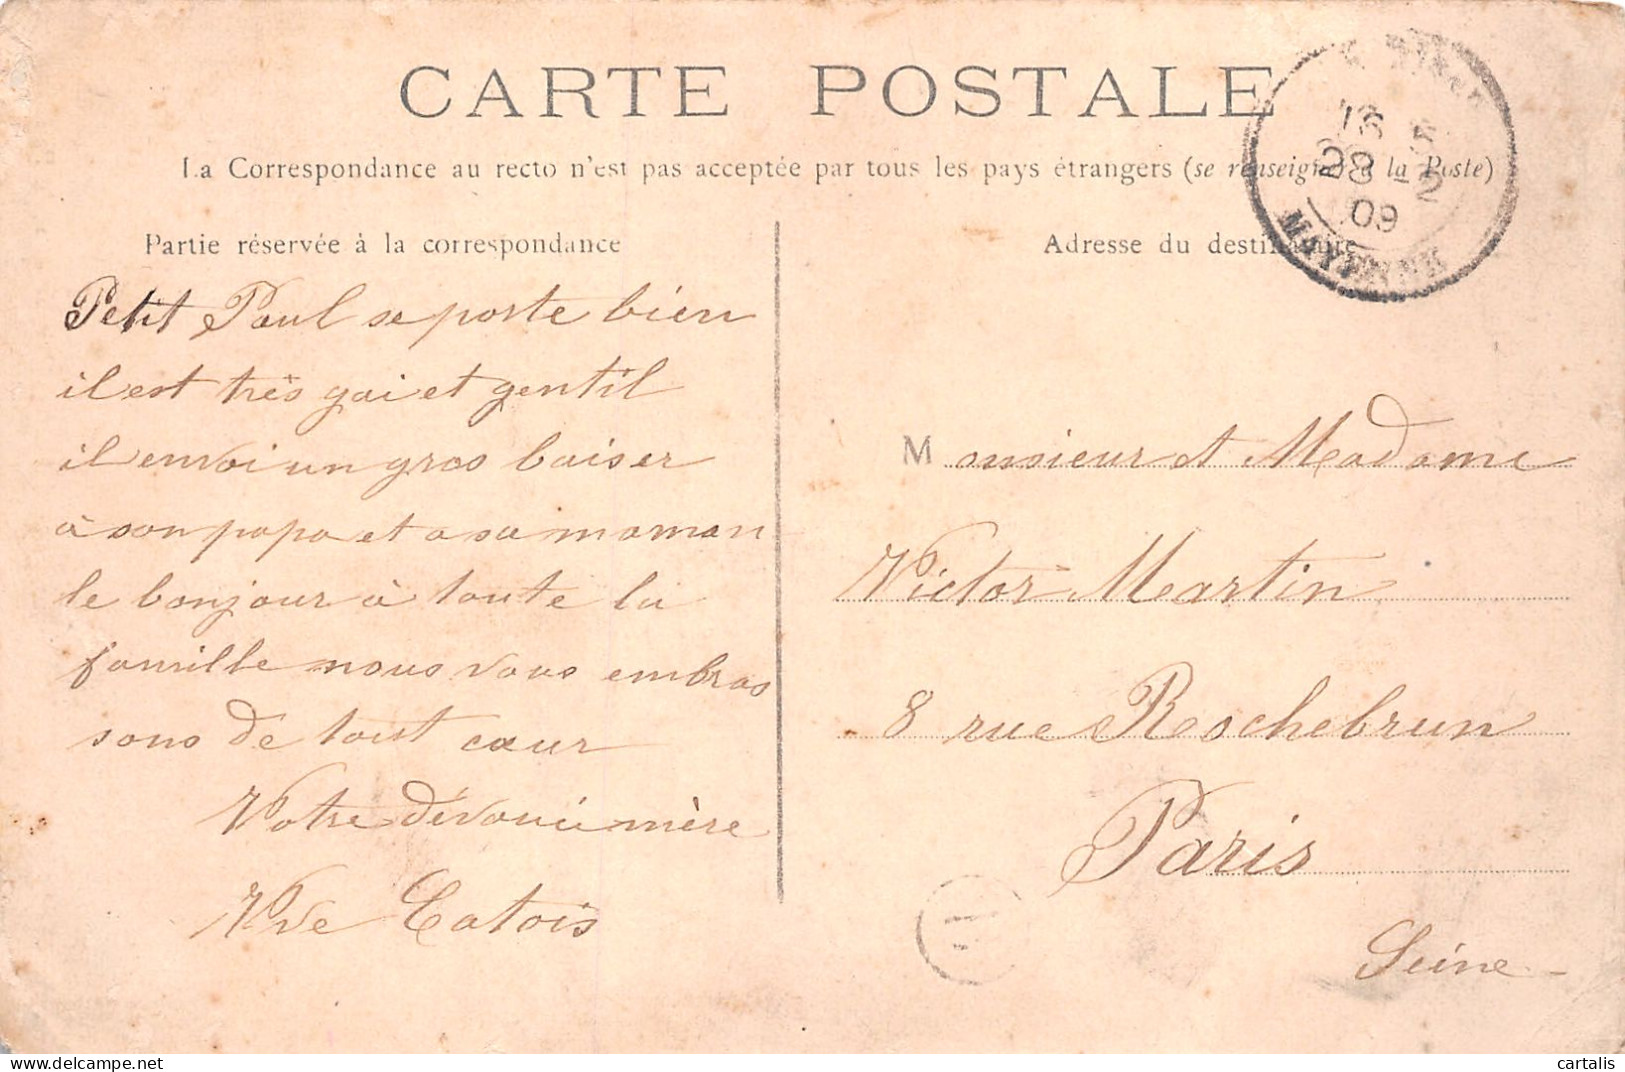 CARTE POSTALE
La Correspondance au recto n'est pas acceptée par tous les pays étrangers (se renseigner à la Poste)
Partie réservée à la correspondance
Petit Paul se porte bien
il est très gai et gentil
il envoi un gros baiser
à son papa et a sa maman
le bonjour à toute la
famille nous vous embras
sons de tout cœur
Votre dévouée mère
Vve Catois
Adresse du destinataire
Monsieur et Madame
Victor Martin
8 rue Rochebrun
Paris
Seine
16
28 -2
09
MAYENNE
cartalis